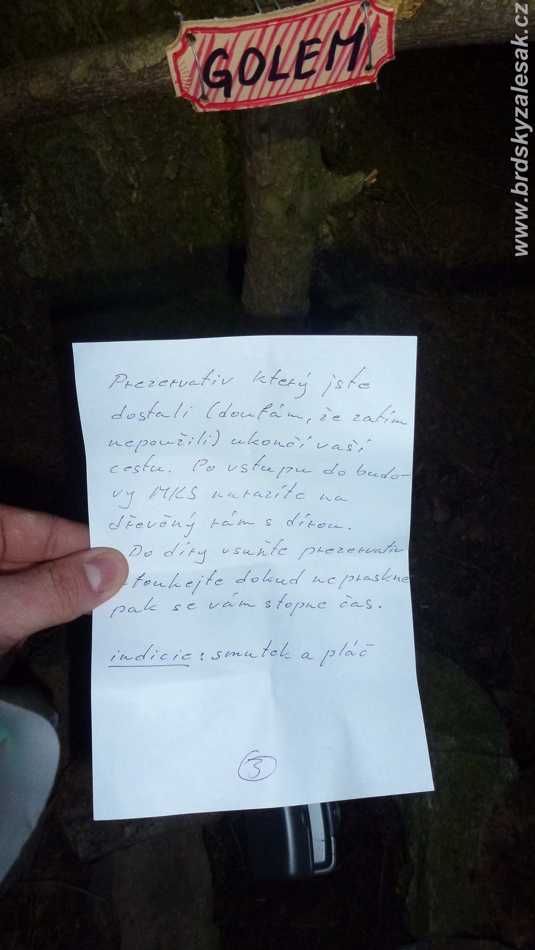 GOLEM
www.brdskyzalesak.cz
Prezervativ který jste
dostali (doufám, že zatím
nepoužili) ukončí vaší
cestu. Po vstupu do budo-
vy MKS narazíte na
dřevěný rám s dírou.
Do díry vsuňte prezervativ
foukejte dokud nepraskne
pak se vám stopne čas.
indicie: smutek a pláč
3